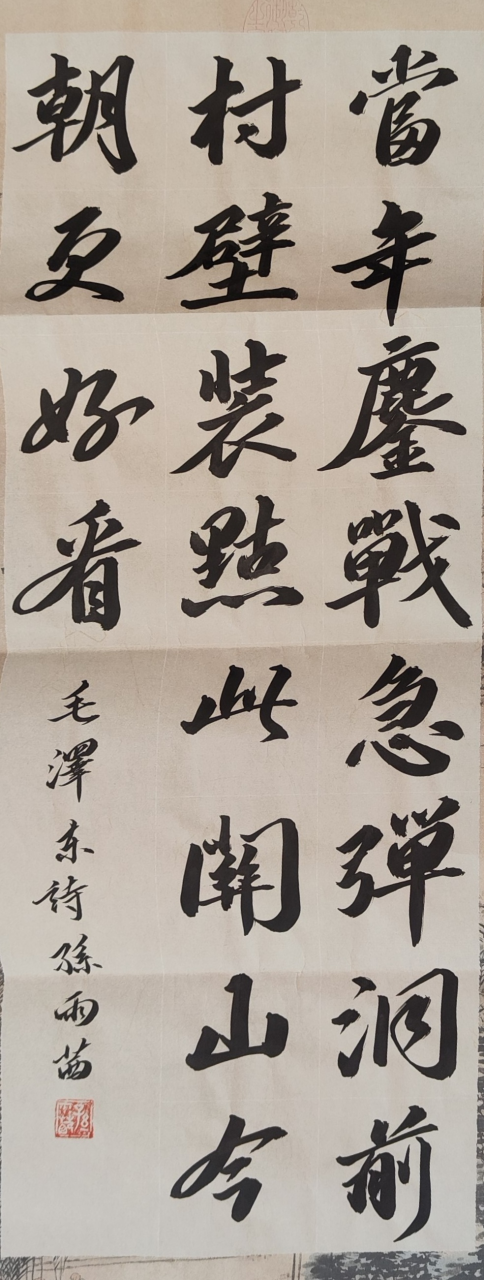 當年鏖戰急彈洞前
村壁裝點此關山今
朝更好看
毛澤东詩孫雨茜